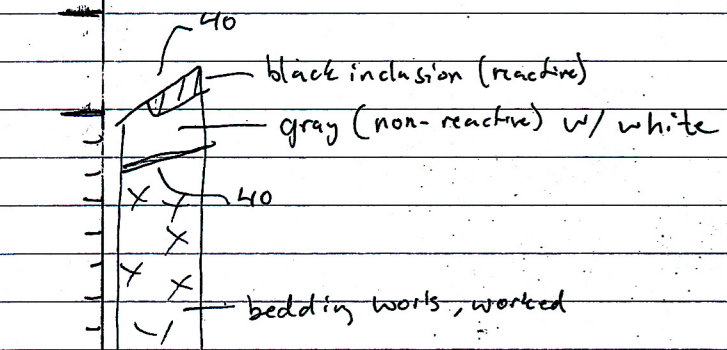 40
black inclusion (reactive)
gray (non-reactive) w/ white
40
bedding works, worked